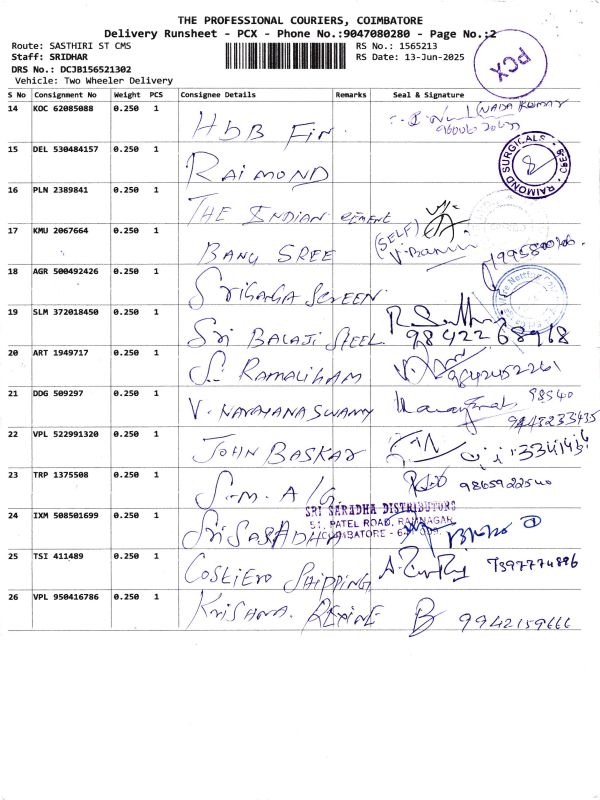 THE PROFESSIONAL COURIERS, COIMBATORE
Delivery Runsheet - PCX - Phone No.:9047080280 - Page No.:2
Route: SASTHIRI ST CMS
RS No.: 1565213
Staff: SRIDHAR
RS Date: 13-Jun-2025
DRS No.: DCJB156521302
Vehicle: Two Wheeler Delivery
PCX
S No Consignment No Weight PCS Consignee Details Remarks Seal & Signature
14 KOC 62085088 0.250 1 HDB Fin.
15 DEL 530484157 0.250 1 RAIMOND RAIMOND SURGICALS
16 PLN 2389841 0.250 1 THE INDIAN cement
17 KMU 2067664 0.250 1 BANU SREE (SELF) V. Banu
18 AGR 500492426 0.250 1 Sriganga SCREEN
19 SLM 372018450 0.250 1 Sri BALAJI STEEL 98422 68968
20 ART 1949717 0.250 1 S. RAMALIHAM 9842452261
21 DDG 509297 0.250 1 V. NARAYANASWAMY 98540
22 VPL 522991320 0.250 1 JOHN BASKAR
23 TRP 1375508 0.250 1 S.M. A/G 9865922540
24 IXM 508501699 0.250 1 Sri SARADHA
SRI SARADHA DISTRIBUTORS
51, PATEL ROAD, RAMNAGAR,
COIMBATORE -
25 TSI 411489 0.250 1 COSTIERO SHIPPING 7397774896
26 VPL 950416786 0.250 1 KRISHNA. REXINE 9942159666